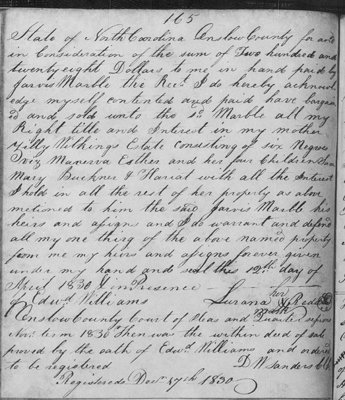 165
State of North Carolina Onslow County for and
in Consideration of the sum of Two hundred and
twenty eight Dollars to me in hand paid by
Jarvis Marble the Rec. I do hereby acknowl
edge myself contented and paid have bargan
d and sold unto the sd Marble all my
Right title and Interest in my mother
Zilly Estate consisting of six Negroes
Viz Manerva Esther and her four Children
Mary Buckner & Harriat with all the Interest
I hold in all the rest of her property as above
metioned to him the said Jarvis Marble his
heirs and asigns and I do warrant and defend
all my one thirg of the above named property
from me my heirs and asigns forever given
under my hand and seal this day of
1830 in Presence
of Edwd Williams Lurana
her
mark
Onslow County Court of Pleas and Quarter
Nov. term 1830 Then was the within deed of sale
proved by the oath of Edwd Williams and ordered
to be registered D W Sanders Clk
Registered Decr 17th 1830